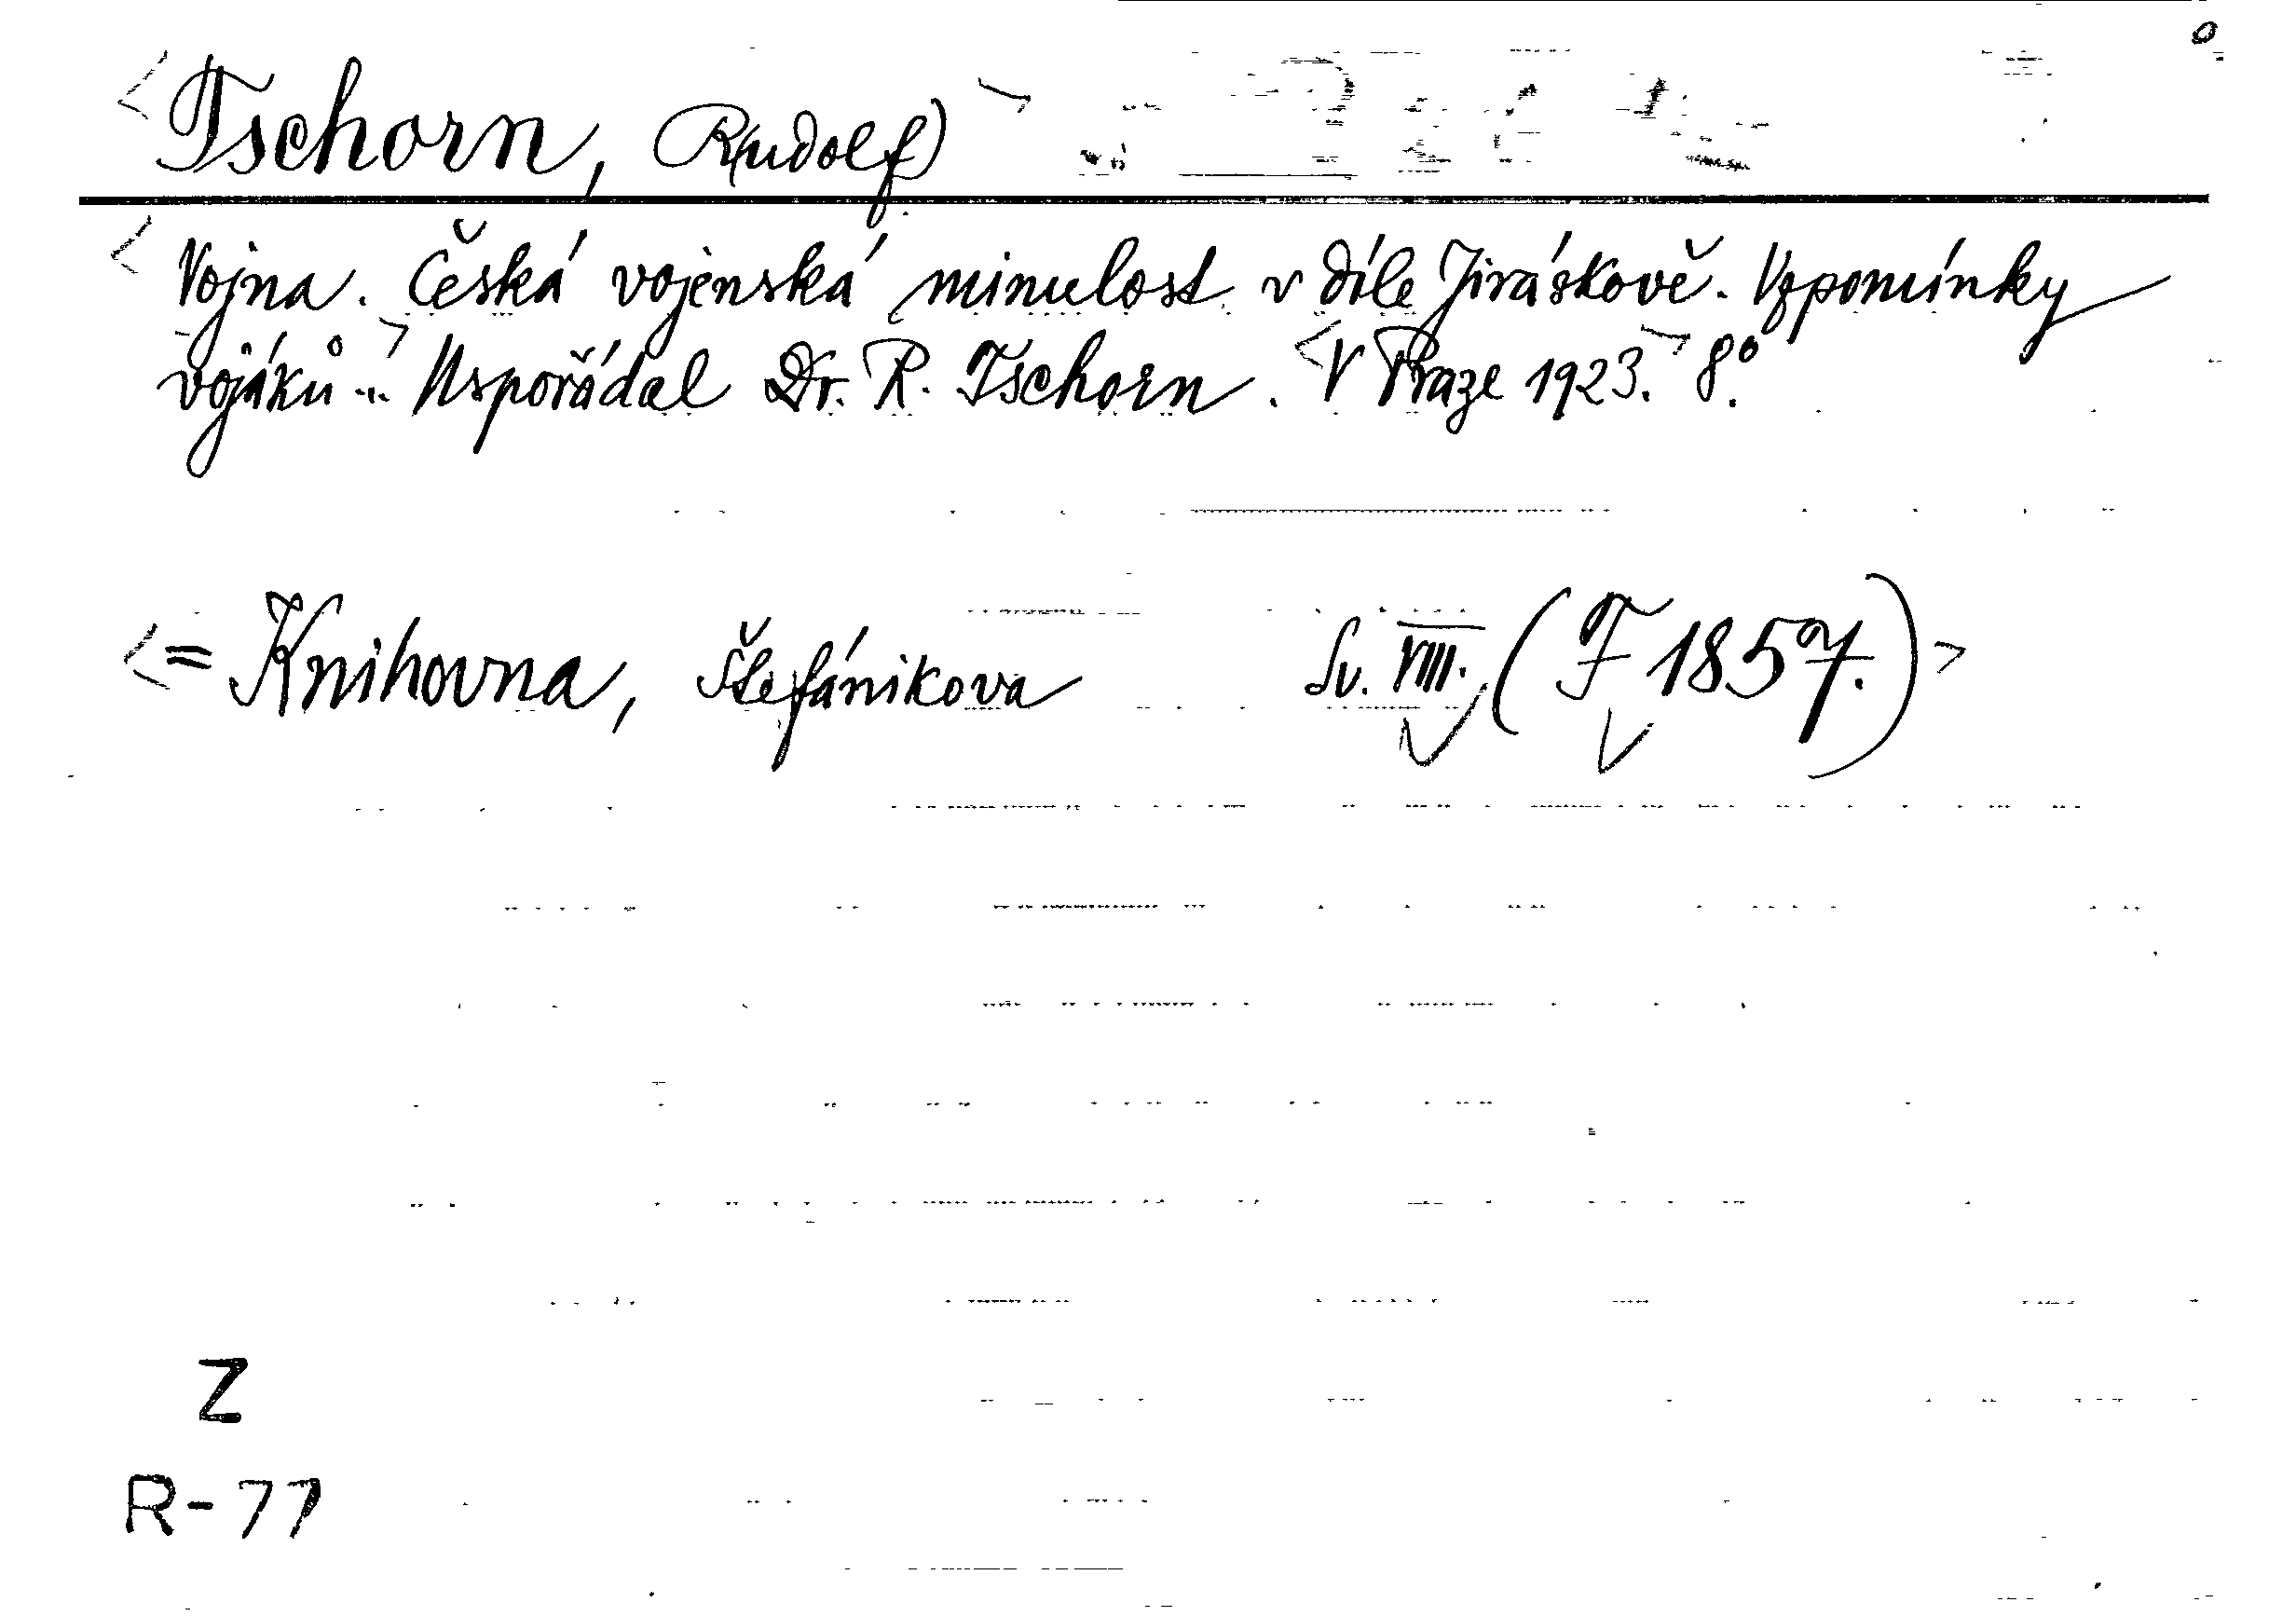 <Tschorn, R(udolf)>
<Vojna. Česká vojenská minulost v díle Jiráskově. Vzpomínky
vojáků...> Uspořádal Dr. R. Tschorn. <V Praze 1923.> 8º.
<= Knihovna, Štefánikova Sv. VIII. (F 1857.)>
Z
R-77